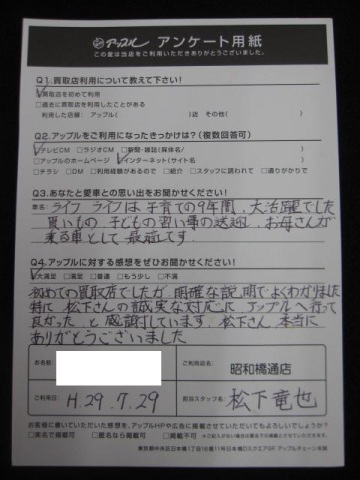 アップル アンケート用紙
この度は当店をご利用いただきありがとうございました。
Q1.買取店利用について教えて下さい!
□買取店を初めて利用
□過去に買取店を利用したことがある
利用した店舗: アップル( )店 その他( )
Q2.アップルをご利用になったきっかけは?(複数回答可)
□テレビCM □ラジオCM □新聞・雑誌(媒体名/ )
□アップルのホームページ □インターネット(サイト名 )
□チラシ □DM □利用経験があるので □紹介 □スタッフに誘われて □通りがかりで
Q3.あなたと愛車との思い出をお聞かせください!
車名: ライフ ライフは子育ての9年間、大活躍でした
買いもの 子どもの習い事の送迎、お母さんが
乗る車として最適です。
Q4.アップルに対する感想をぜひお聞かせください!
□大満足 □満足 □普通 □もう少し □不満
初めての買取店でしたが、明確な説明でよくわかりました
特に 松下さんの誠実な対応に アップルへ行って
良かった と感謝しています。松下さん 本当に
ありがとうございました
お名前:
ご利用店名: 昭和橋通店
ご利用日: H.29.7.29
担当スタッフ名: 松下竜也
お客様に書いていただいた感想を、アップルHPや広告に掲載させていただいてもよろしいでしょうか?
□実名で掲載可 □匿名なら掲載可 □掲載不可